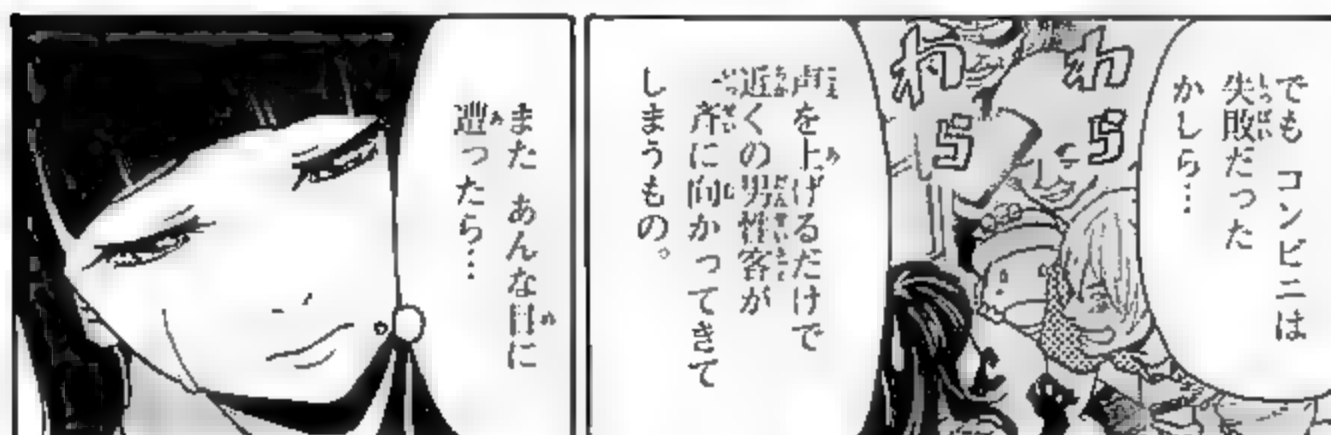 でも コンビニは
失敗だった
かしら…
わらわら
声を上げるだけで
近くの男性客が
一斉に向かってきて
しまうもの。
また あんな目に
遭ったら…